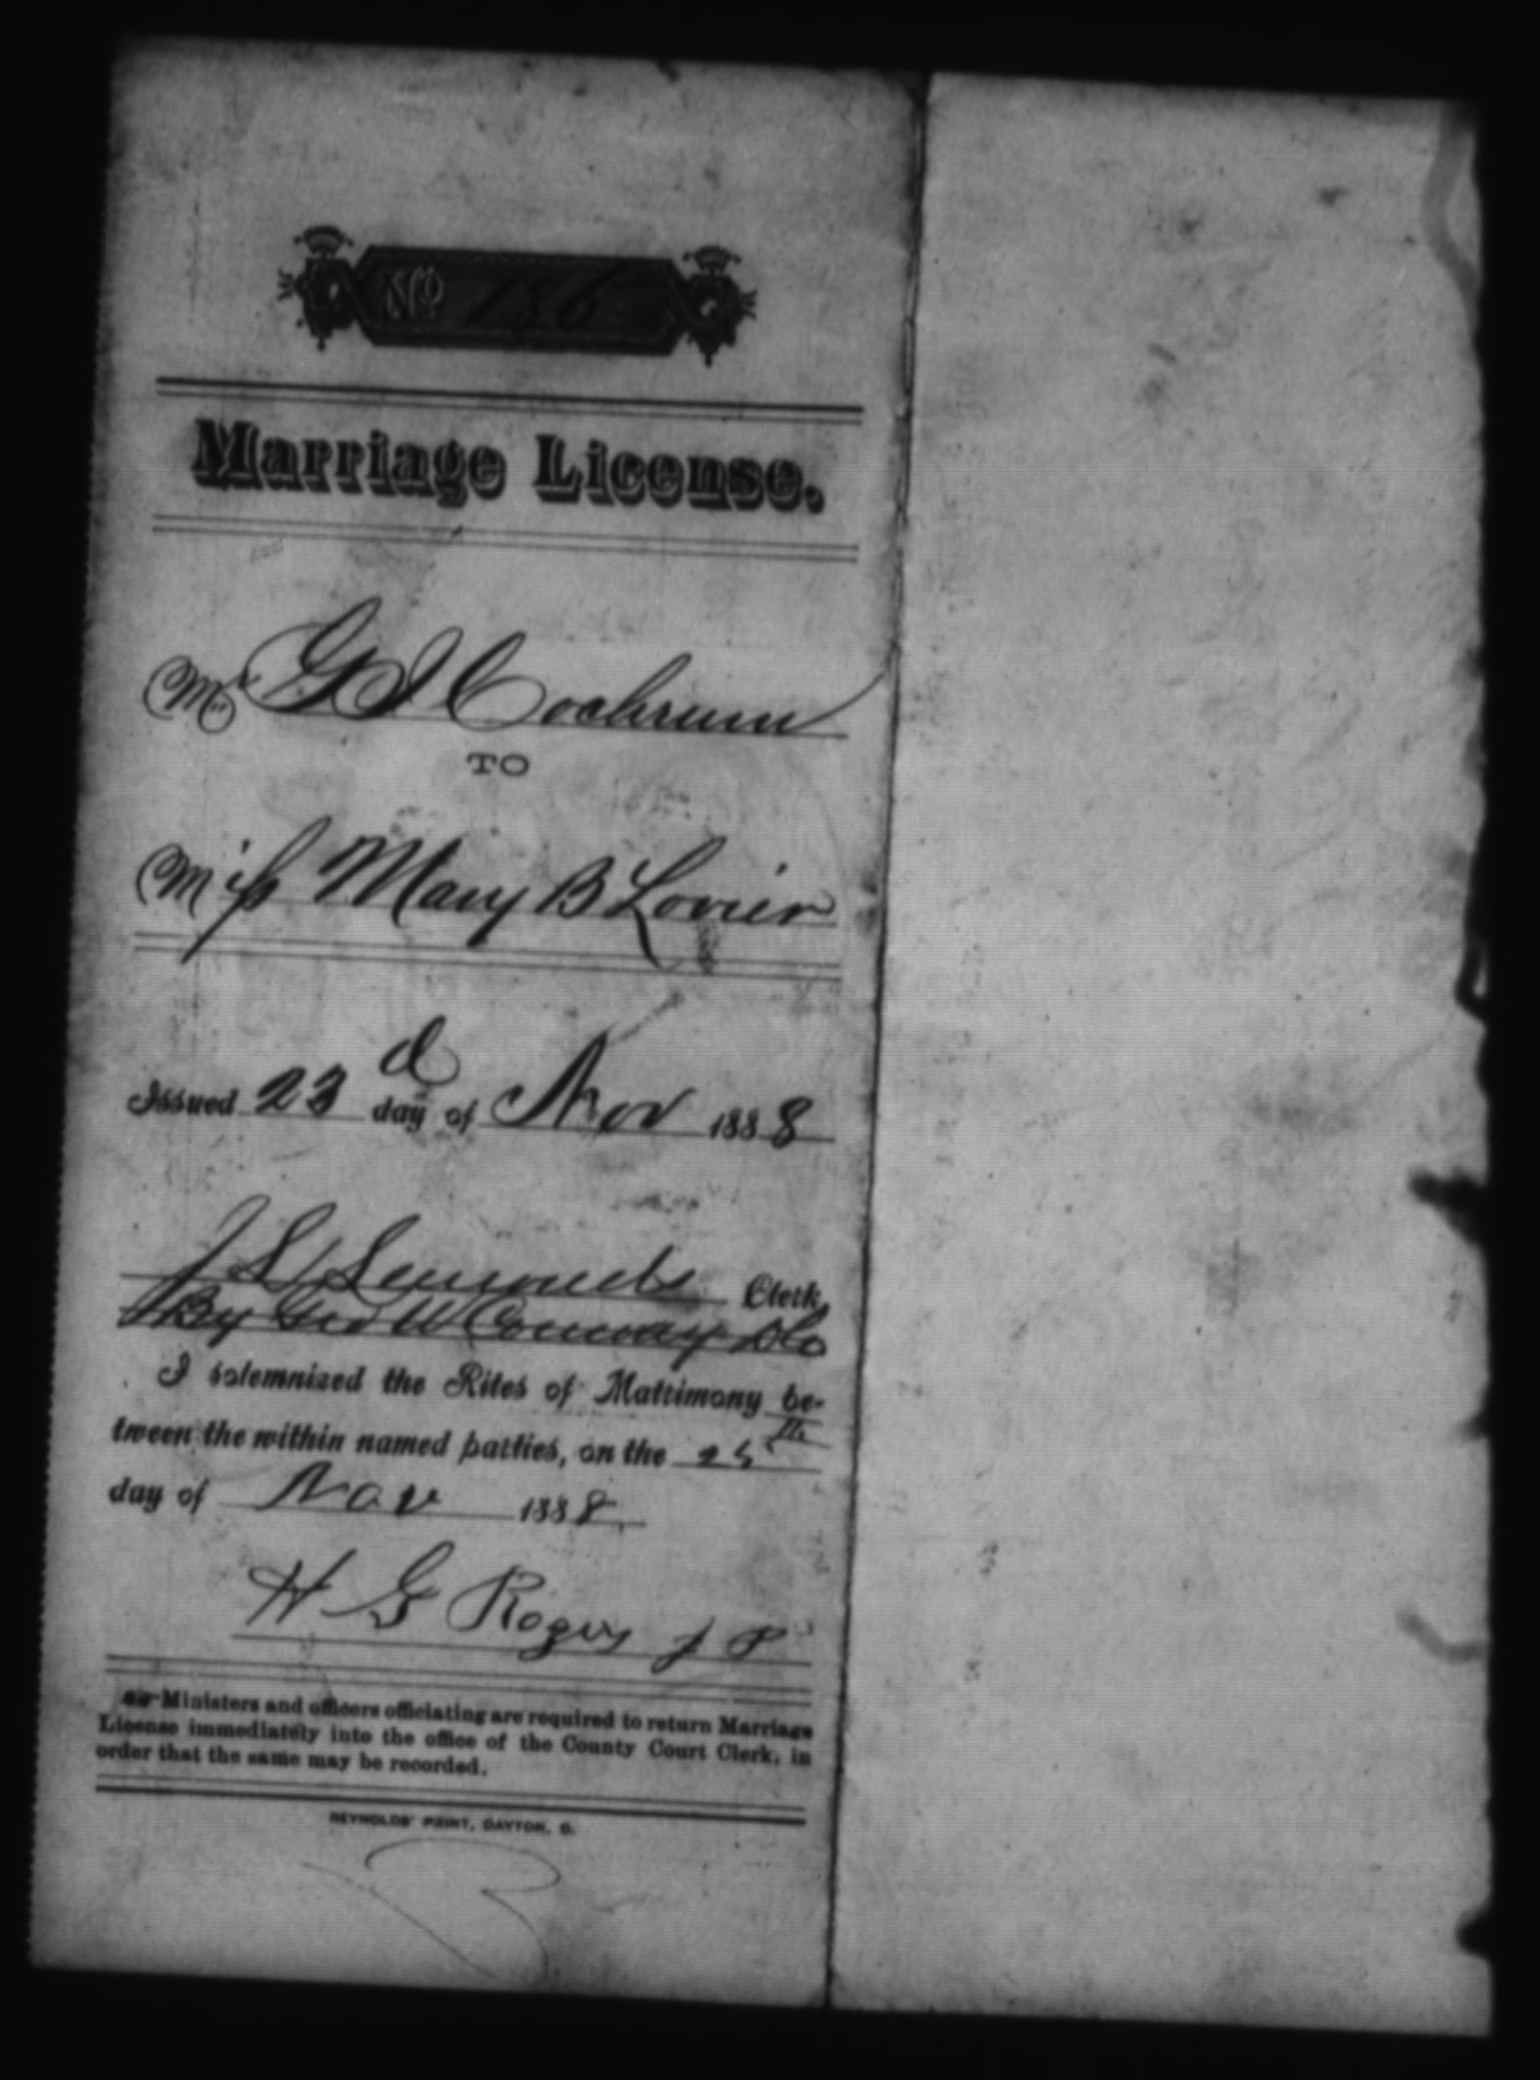 No 186
Marriage License.
Mr G I Cochrum
TO
Miss Mary B Lovier
Issued 23 d day of Nov 1888
J S Clerk,
By Geo W Conway DC
I solemnized the Rites of Matrimony be-
tween the within named parties, on the 25th
day of Nov 1888,
H G Rogers J P
Ministers and officers officiating are required to return Marriage
License immediately into the office of the County Court Clerk, in
order that the same may be recorded.
REYNOLDS' PRINT, DAYTON, O.